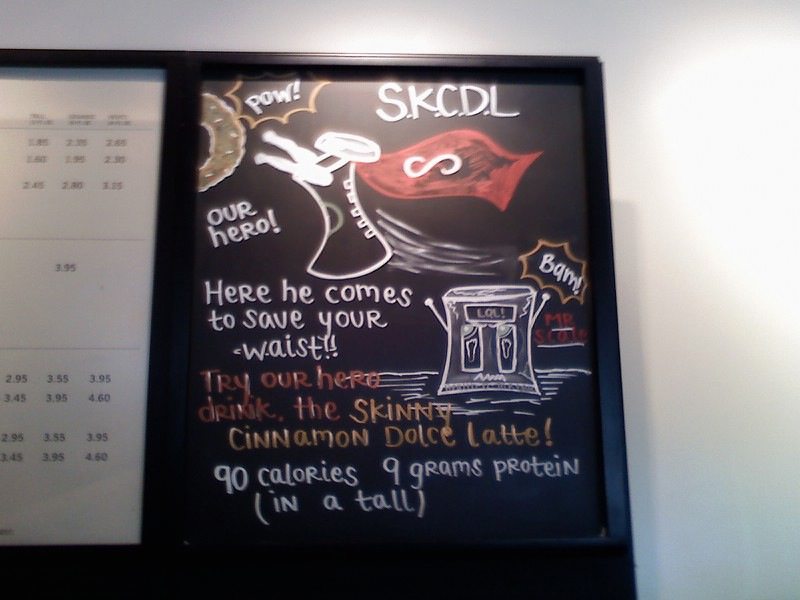 1.85 2.35 2.65
1.60 1.95 2.30
2.45 2.80 3.15
3.95
2.95 3.55 3.95
3.45 3.95 4.60
2.95 3.55 3.95
3.45 3.95 4.60
POW!
S.K.C.D.L
S
OUR
HERO!
Bam!
LOL!
MR
Scale
Here he comes
to save your
waist!!
Try our hero
drink, the Skinny
Cinnamon Dolce Latte!
90 calories 9 grams protein
(in a tall)